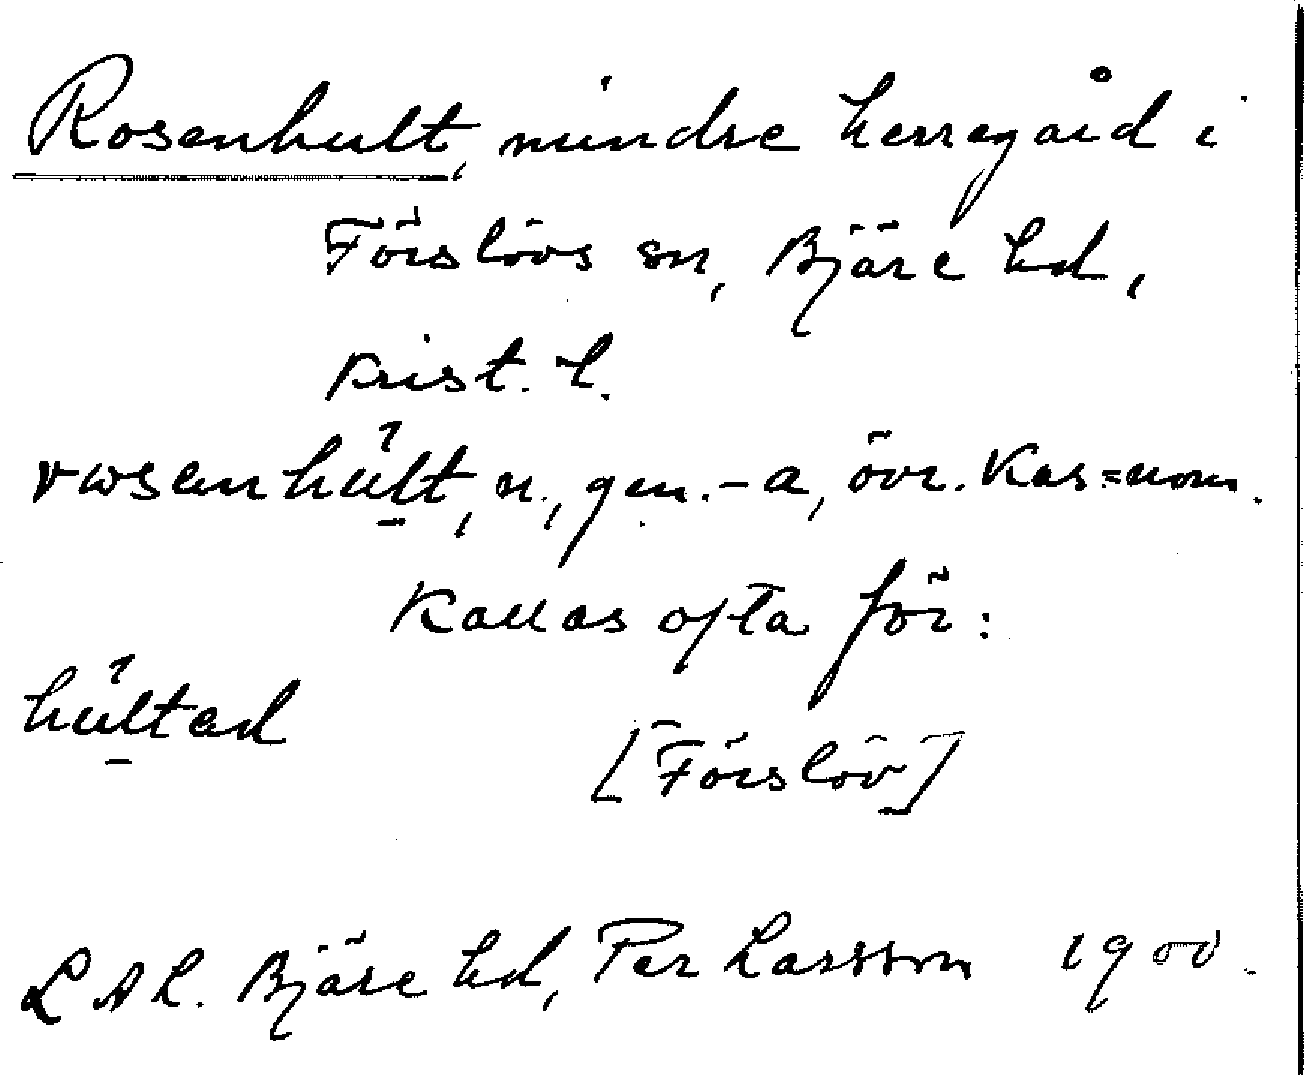 Rosenhult, mindre herregård i
Förslövs sn, Bjäre hd,
Krist. l.
rosenhult, n., gen. -a, övr. kas = nom.
Kallas ofta för:
hultad
[Förslöv]
LAL. Bjäre hd, Per Larsson 1900.